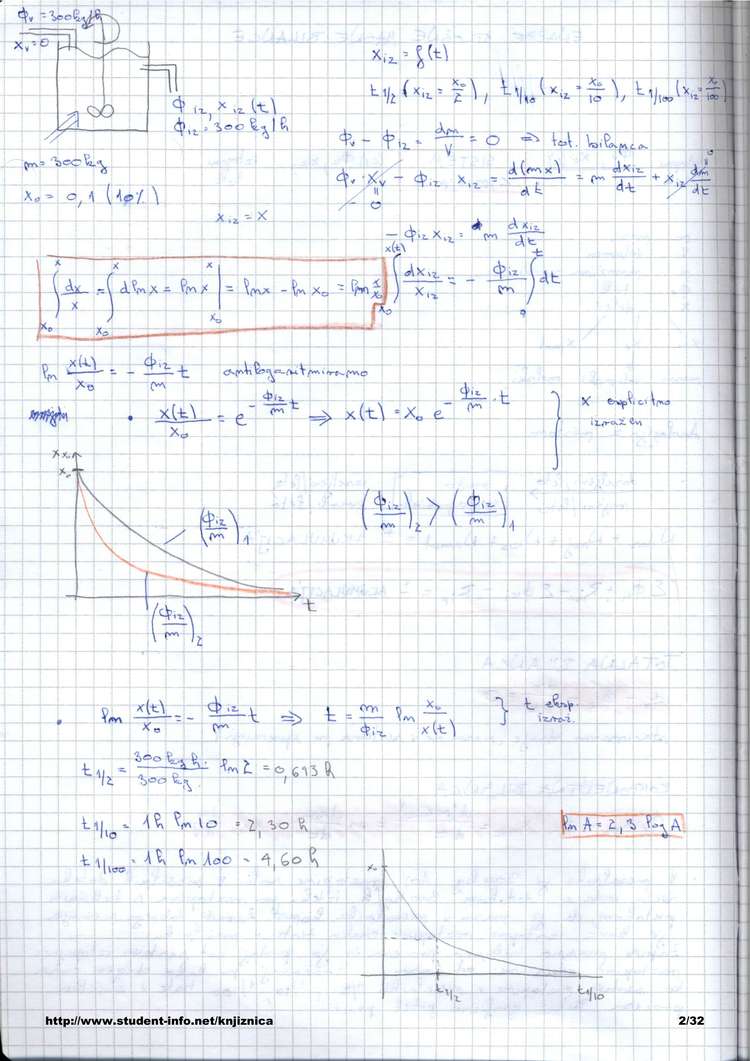 ϕv = 300 kg/h
xv = 0
ϕiz, xiz (t)
ϕiz = 300 kg/h
m = 300 kg
x₀ = 0,1 (10%)
xiz = x
xiz = f(t)
t1/2 (xiz = x₀/2), t1/10 (xiz = x₀/10), t1/100 (xiz = x₀/100)
ϕv − ϕiz = dm/V = 0 ⇒ tot. bilanca
ϕv · xv − ϕiz xiz = d(mx)/dt = m dxiz/dt + xiz dm/dt
= 0
0
−ϕiz xiz = m dxiz/dt
∫ dx/x = ∫ d ln x = ln x | = ln x − ln x₀ = ln x/x₀
x x x
x₀ x₀ x₀
x(t) t
∫ dxiz/xiz = − ϕiz/m ∫ dt
x₀ 0
ln x(t)/x₀ = − ϕiz/m t antilogaritmiramo
• x(t)/x₀ = e^(−ϕiz/m t) ⇒ x(t) = x₀ e^(−ϕiz/m · t) } x explicitno
izražen
x₀
(ϕiz/m)₁
(ϕiz/m)₂ > (ϕiz/m)₁
t
(ϕiz/m)₂
• ln x(t)/x₀ = − ϕiz/m t ⇒ t = m/ϕiz ln x₀/x(t) } t eksp.
izraž.
t1/2 = 300 kg h/300 kg · ln 2 = 0,693 h
t1/10 = 1h ln 10 = 2,30 h
ln A = 2,3 log A
t1/100 = 1h ln 100 = 4,60 h
x₀
t1/2 t1/10
http://www.student-info.net/knjiznica 2/32